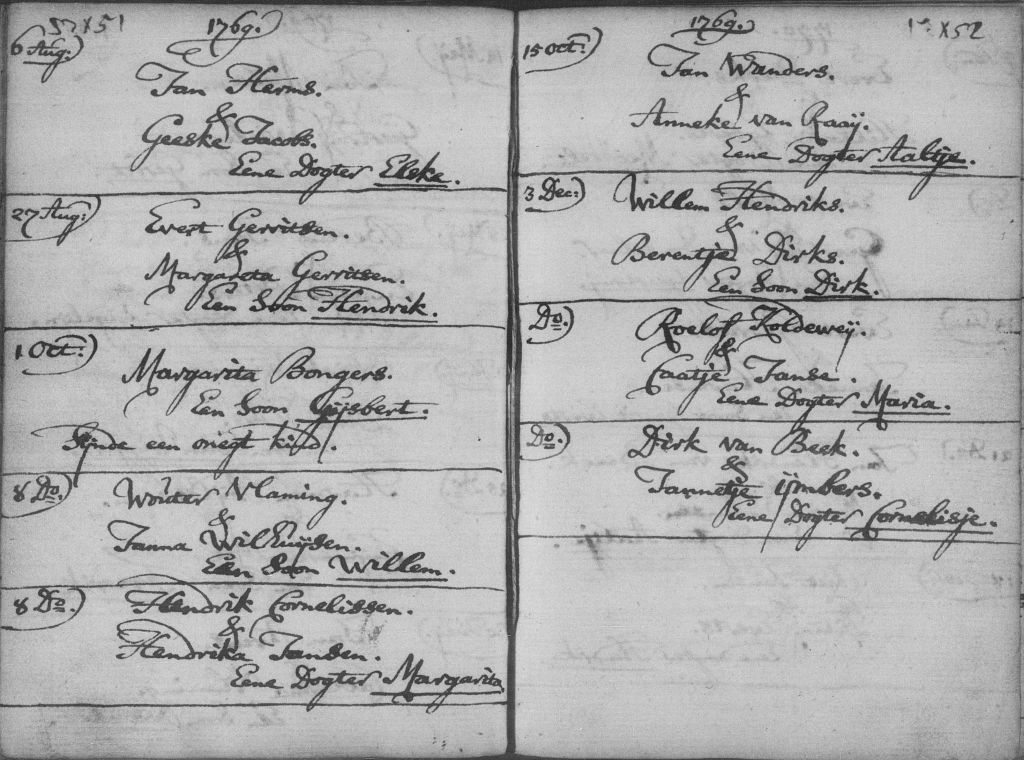 51
1769.
6 Aug:)
Jan Herms.
&
Geeske Jacobs.
Eene Dogter Elske.
27 Aug:)
Evert Gerritsen.
&
Margareta Gerritsen.
Een Soon Hendrik.
1 Oct:)
Margarita Bongers.
Een Soon Gijsbert.
Zijnde een onegt kind.
8 Do.)
Wouter Vlaming.
&
Janna Wilhuijsen.
Een Soon Willem.
8 Do.)
Hendrik Cornelissen.
&
Hendrika Jansen.
Eene Dogter Margarita
1769.
52
15 Oct:)
Jan Wanders.
&
Anneke van Raaij.
Eene Dogter Aaltje.
3 Dec:)
Willem Hendriks.
&
Berentje Dirks.
Een Soon Dirk.
Do.)
Roelof Koldeweij.
&
Caatje Janse.
Eene Dogter Maria.
Do.)
Dirk van Beek.
&
Jannetje ijmbers.
Eene Dogter Cornelisje.